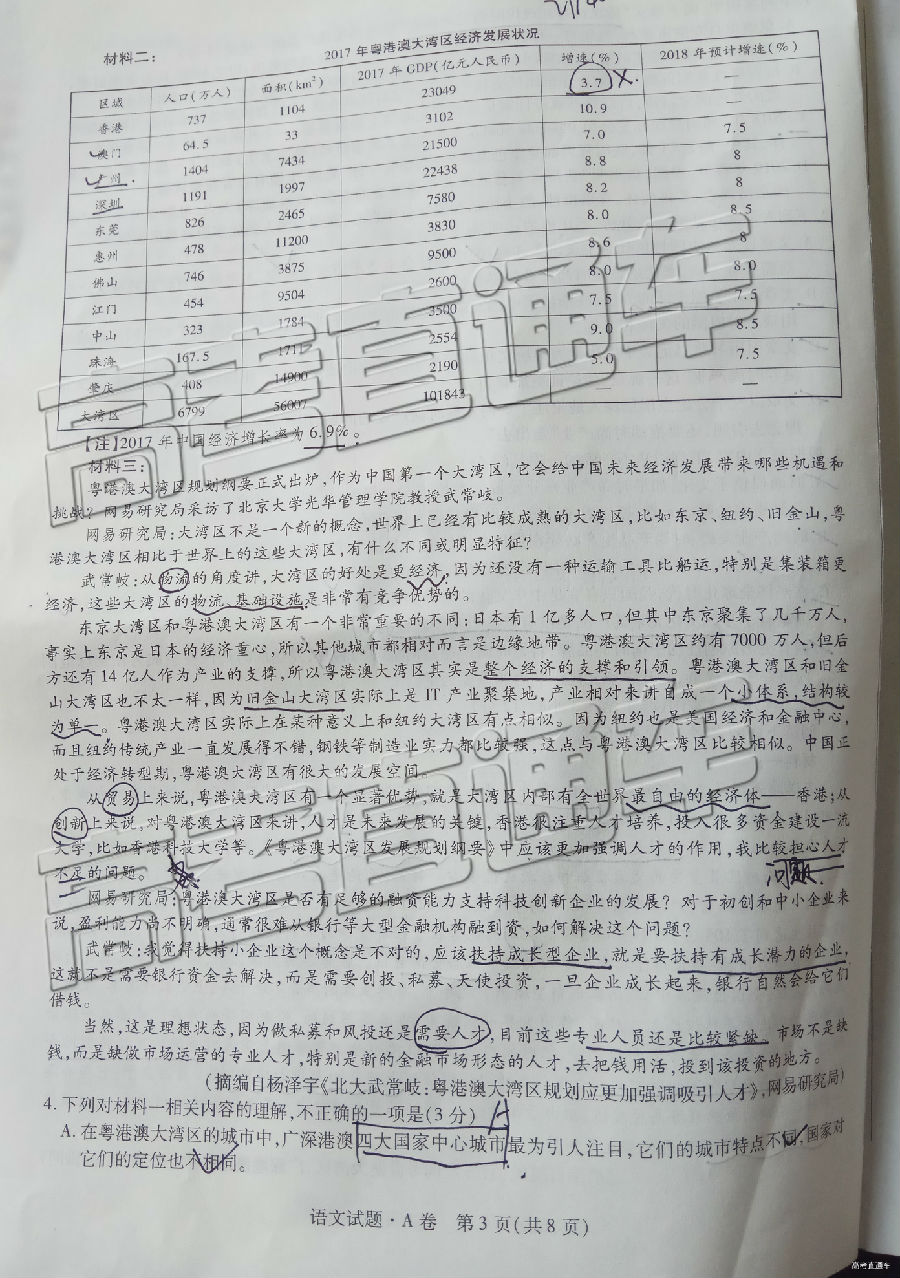 材料二:
2017年粤港澳大湾区经济发展状况
区域 人口(万人) 面积(km²) 2017年GDP(亿元人民币) 增速(%) 2018年预计增速(%)
香港 737 1104 23049 3.7 —
澳门 64.5 33 3102 10.9 —
广州 1404 7434 21500 7.0 7.5
深圳 1191 1997 22438 8.8 8
东莞 826 2465 7580 8.2 8
惠州 478 11200 3830 8.0 8.5
佛山 746 3875 9500 8.6 8
江门 454 9504 2600 8.0 8.0
中山 323 1784 3500 7.5 7.5
珠海 167.5 171 2554 9.0 8.5
肇庆 408 14900 2190 5.0 7.5
大湾区 6799 56007 101843 — —
【注】2017年中国经济增长率为6.9%。
材料三:
粤港澳大湾区规划纲要正式出炉,作为中国第一个大湾区,它会给中国未来经济发展带来哪些机遇和
挑战?网易研究局采访了北京大学光华管理学院教授武常岐。
网易研究局:大湾区不是一个新的概念,世界上已经有比较成熟的大湾区,比如东京、纽约、旧金山,粤
港澳大湾区相比于世界上的这些大湾区,有什么不同或明显特征?
武常岐:从物流的角度讲,大湾区的好处是更经济,因为还没有一种运输工具比船运,特别是集装箱更
经济,这些大湾区的物流、基础设施是非常有竞争优势的。
东京大湾区和粤港澳大湾区有一个非常重要的不同:日本有1亿多人口,但其中东京聚集了几千万人,
事实上东京是日本的经济重心,所以其他城市都相对而言是边缘地带。粤港澳大湾区约有7000万人,但后
方还有14亿人作为产业的支撑,所以粤港澳大湾区其实是整个经济的支撑和引领。粤港澳大湾区和旧金
山大湾区也不太一样,因为旧金山大湾区实际上是IT产业聚集地,产业相对来讲自成一个小体系,结构较
为单一。粤港澳大湾区实际上在某种意义上和纽约大湾区有点相似。因为纽约也是美国经济和金融中心,
而且纽约传统产业一直发展得不错,钢铁等制造业实力都比较强,这点与粤港澳大湾区比较相似。中国正
处于经济转型期,粤港澳大湾区有很大的发展空间。
从贸易上来说,粤港澳大湾区有一个显著优势,就是大湾区内部有全世界最自由的经济体——香港;从
创新上来说,对粤港澳大湾区来讲,人才是未来发展的关键,香港很注重人才培养,投入很多资金建设一流
大学,比如香港科技大学等。《粤港澳大湾区发展规划纲要》中应该更加强调人才的作用,我比较担心人才
不足的问题。
问题
网易研究局:粤港澳大湾区是否有足够的融资能力支持科技创新企业的发展?对于初创和中小企业来
说,盈利能力尚不明确,通常很难从银行等大型金融机构融到资,如何解决这个问题?
武常岐:我觉得扶持小企业这个概念是不对的,应该扶持成长型企业,就是要扶持有成长潜力的企业,
这就不是需要银行资金去解决,而是需要创投、私募、天使投资,一旦企业成长起来,银行自然会给它们
借钱。
当然,这是理想状态,因为做私募和风投还是需要人才,目前这些专业人员还是比较紧缺。市场不是缺
钱,而是缺做市场运营的专业人才,特别是新的金融市场形态的人才,去把钱用活,投到该投资的地方。
(摘编自杨泽宇《北大武常岐:粤港澳大湾区规划应更加强调吸引人才》,网易研究局)
4.下列对材料一相关内容的理解,不正确的一项是(3分) A
A.在粤港澳大湾区的城市中,广深港澳四大国家中心城市最为引人注目,它们的城市特点不同,国家对
它们的定位也不相同。
语文试题·A卷 第3页(共8页)
高考直通车
高考直通车
高考直通车